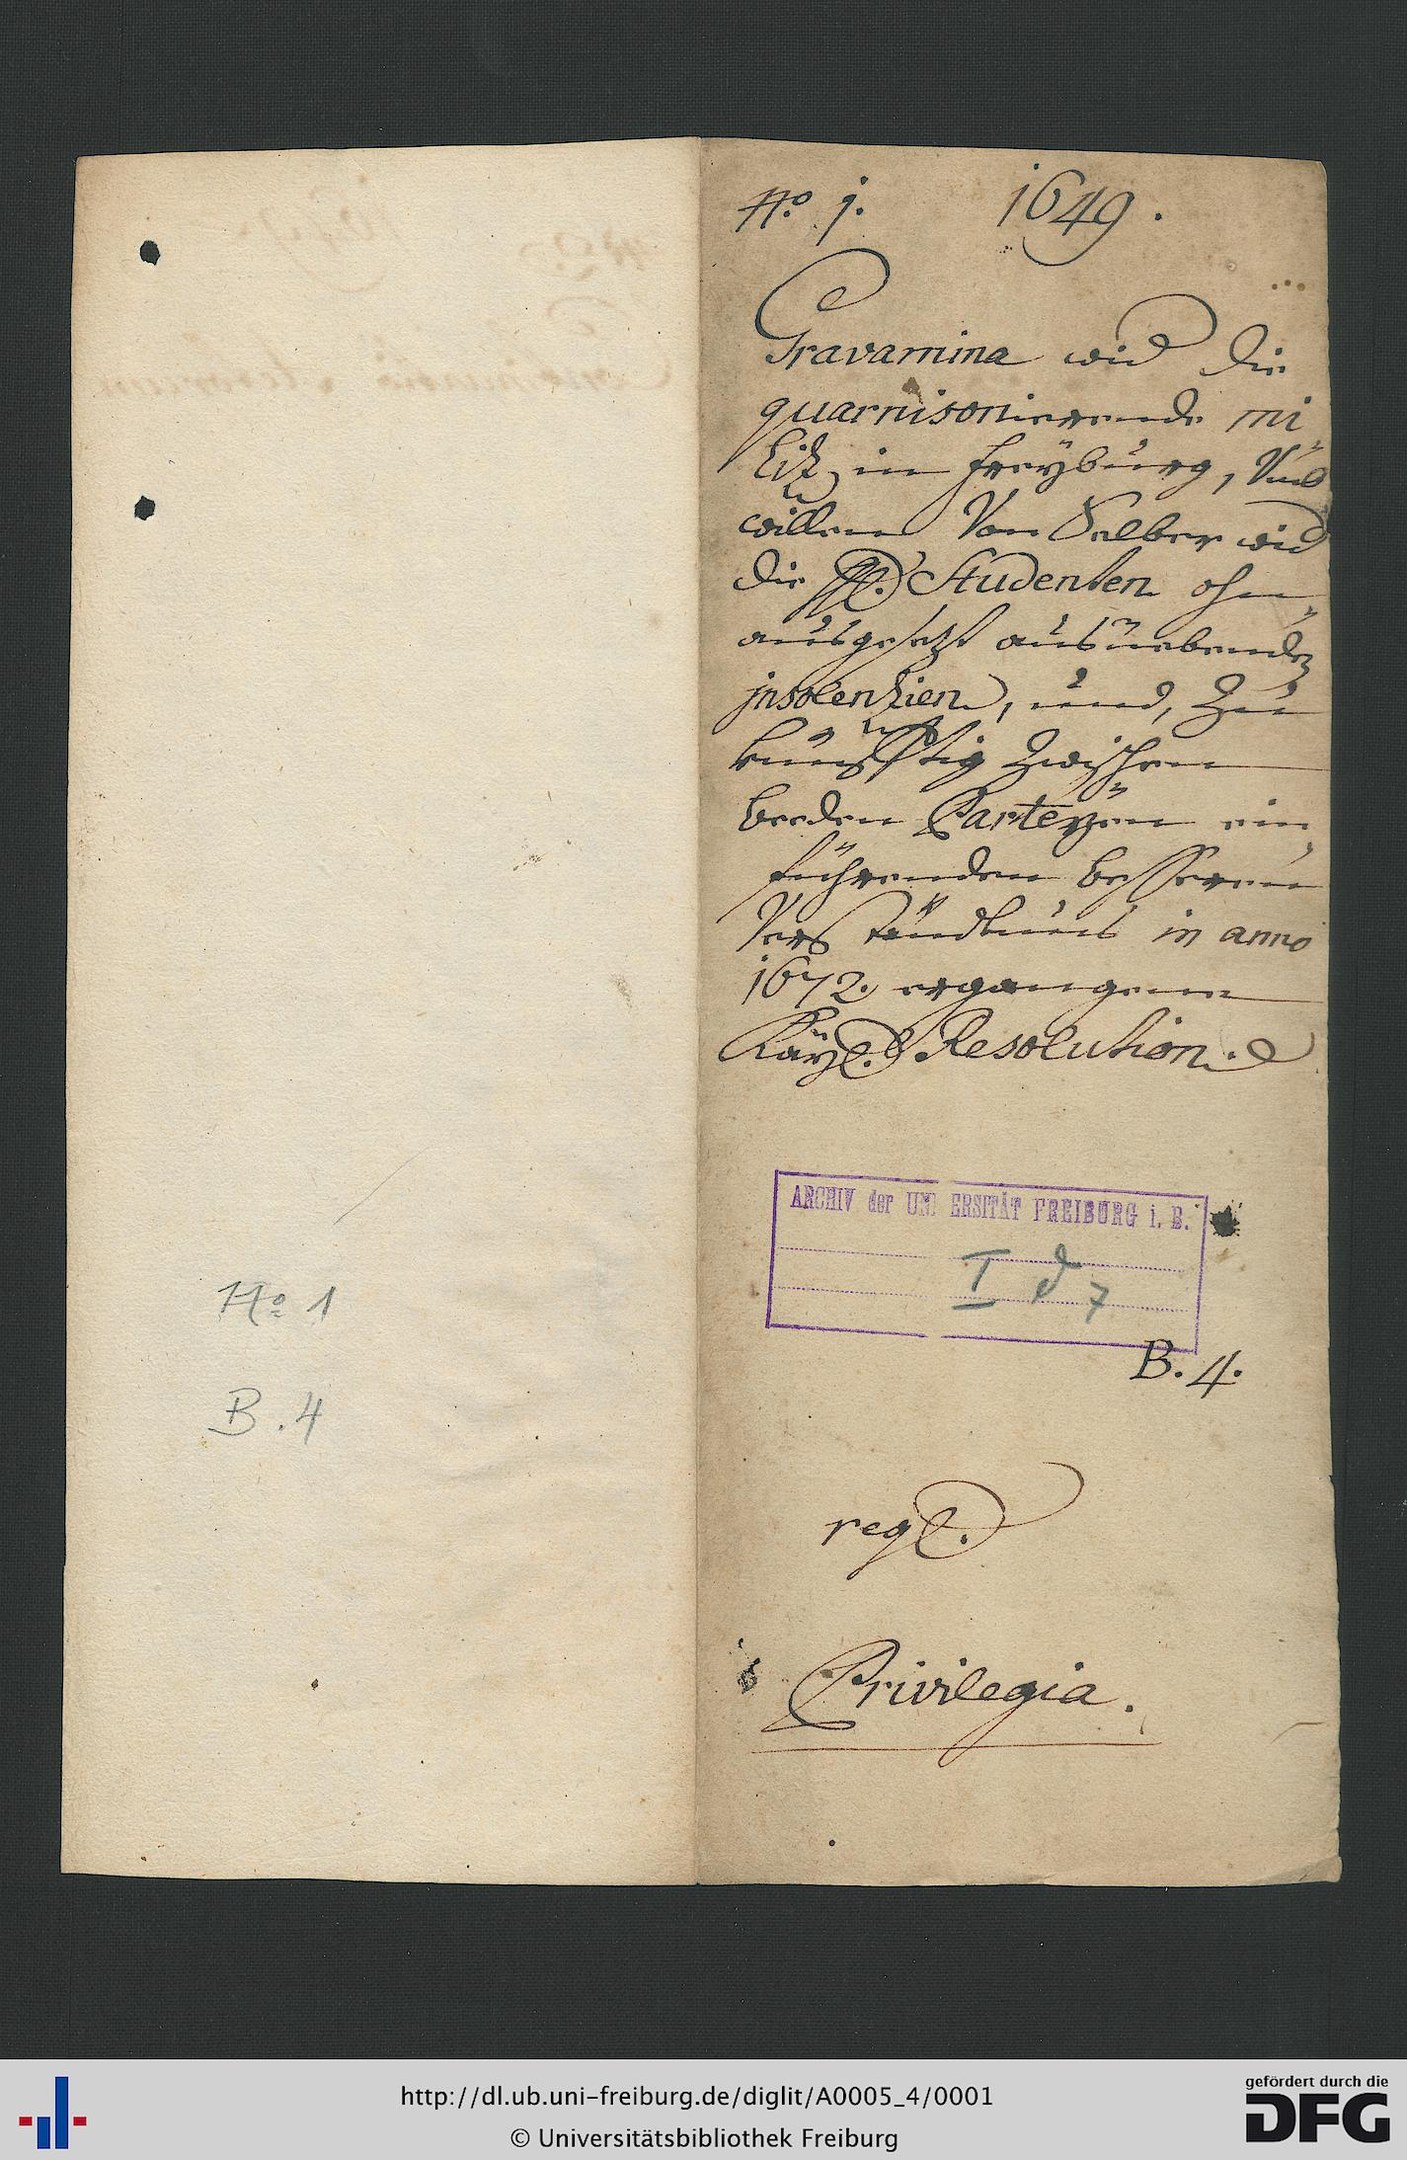 No 1
B. 4
No. 1. 1649.
Gravamina wid die
quarnisonierende mi
litz in Freÿburg, Umb
willen Von Selber wid
die Studenten ohn
ausgesetzt ausüebenden
insolentzien, und, Zu
künfftig Zwischen
beeden Parteÿen ein
führenden besseren
Verständtnus in anno
1672. ergangene
Kaÿl. Resolution.
ARCHIV der UNI ERSITÄT FREIBURG i. B.
I d 7
B. 4.
Privilegia.
http://dl.ub.uni-freiburg.de/diglit/A0005_4/0001
© Universitätsbibliothek Freiburg
gefördert durch die
DFG